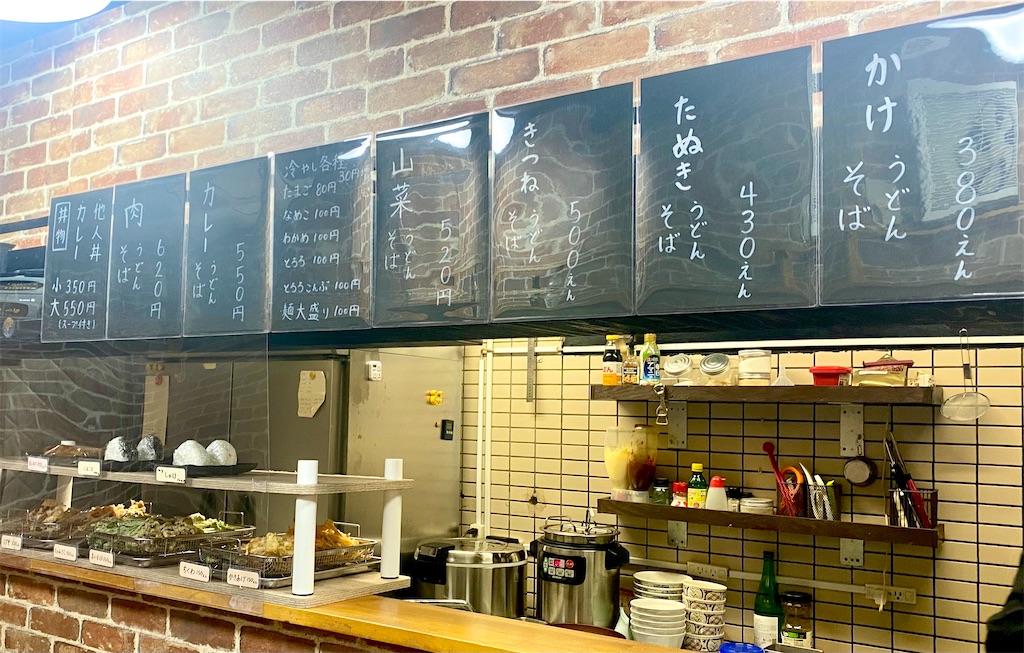 かけ
うどん
そば
380えん
たぬき
うどん
そば
430えん
きつね
うどん
そば
500えん
山菜
うどん
そば
520円
冷やし各種
30円
たまご 80円
なめこ 100円
わかめ 100円
とろろ 100円
とろろこんぶ 100円
麺大盛り 100円
カレー
うどん
そば
550円
肉
うどん
そば
620円
丼物
他人丼
カレー
小 350円
大 550円
(スープ付き)
しゃけ
ちくわ
かきあげ